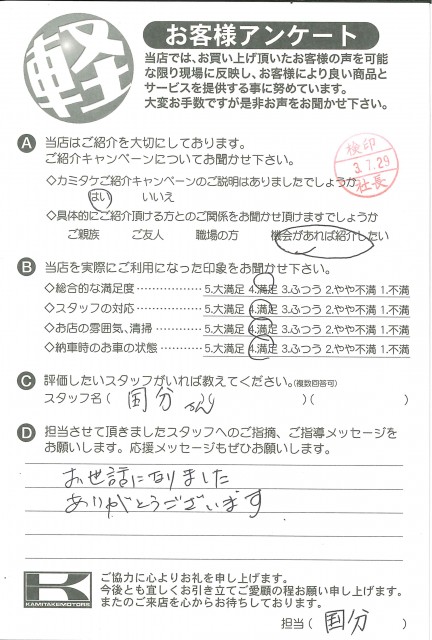 軽
お客様アンケート
当店では、お買い上げ頂いたお客様の声を可能
な限り現場に反映し、お客様により良い商品と
サービスを提供する事に努めています。
大変お手数ですが是非お声をお聞かせ下さい。
A 当店はご紹介を大切にしております。
ご紹介キャンペーンについてお聞かせ下さい。
検印
3.7.29
社長
◇カミタケご紹介キャンペーンのご説明はありましたでしょうか
はい いいえ
◇具体的にご紹介頂ける方とのご関係をお聞かせ頂けますでしょうか
ご親族 ご友人 職場の方 機会があれば紹介したい
B 当店を実際にご利用になった印象をお聞かせ下さい。
◇総合的な満足度 ・・・・・・・・・・・・・ 5.大満足 4.満足 3.ふつう 2.やや不満 1.不満
◇スタッフの対応 ・・・・・・・・・・・・・ 5.大満足 4.満足 3.ふつう 2.やや不満 1.不満
◇お店の雰囲気、清掃 ・・・・・・・・ 5.大満足 4.満足 3.ふつう 2.やや不満 1.不満
◇納車時のお車の状態 ・・・・・・・・ 5.大満足 4.満足 3.ふつう 2.やや不満 1.不満
C 評価したいスタッフがいれば教えてください。(複数回答可)
スタッフ名( 国分さん )( )
D 担当させて頂きましたスタッフへのご指摘、ご指導メッセージを
お願いします。応援メッセージもぜひお願いします。
お世話になりました
ありがとうございます
K
KAMITAKEMOTORS
ご協力に心よりお礼を申し上げます。
今後とも宜しくお引き立てご愛顧の程お願い申し上げます。
またのご来店を心からお待ちしております。
担当( 国分 )